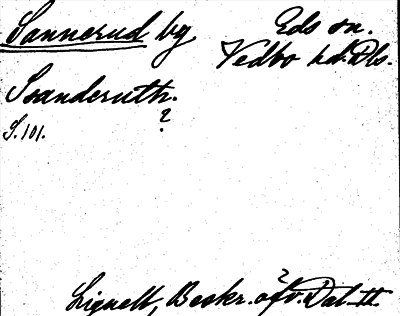 Sannerud by
Eds sn.
Vedbo hd. Dls.
Ssanderuth.
?
S. 101.
Lignell, Beskr. öfv. Dal. II